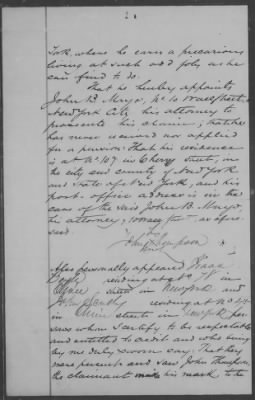 York, where he earns a precarious
living at such odd jobs as he
can find to do.
That he hereby appoints
John B. Murg No 10 Wall Street
New York City his attorney to
prosecute his claim; that he
has never received nor applied
for a pension: That his residence
is at No 107 in Cherry Street, in
the city and county of New York and
State of New York, and his
post-office address is in the
care of the said John B. Murg,
his attorney, 10 Wall St as afore
said
John Thompson
Also personally appeared Isaac
residing at No 78 in
Street in New York and
residing at No
in Street in New York per-
sons whom I certify to be respectable
and entitled to credit and who being
by me duly sworn say: That they
were present and saw John Thompson
the claimant make his mark to the